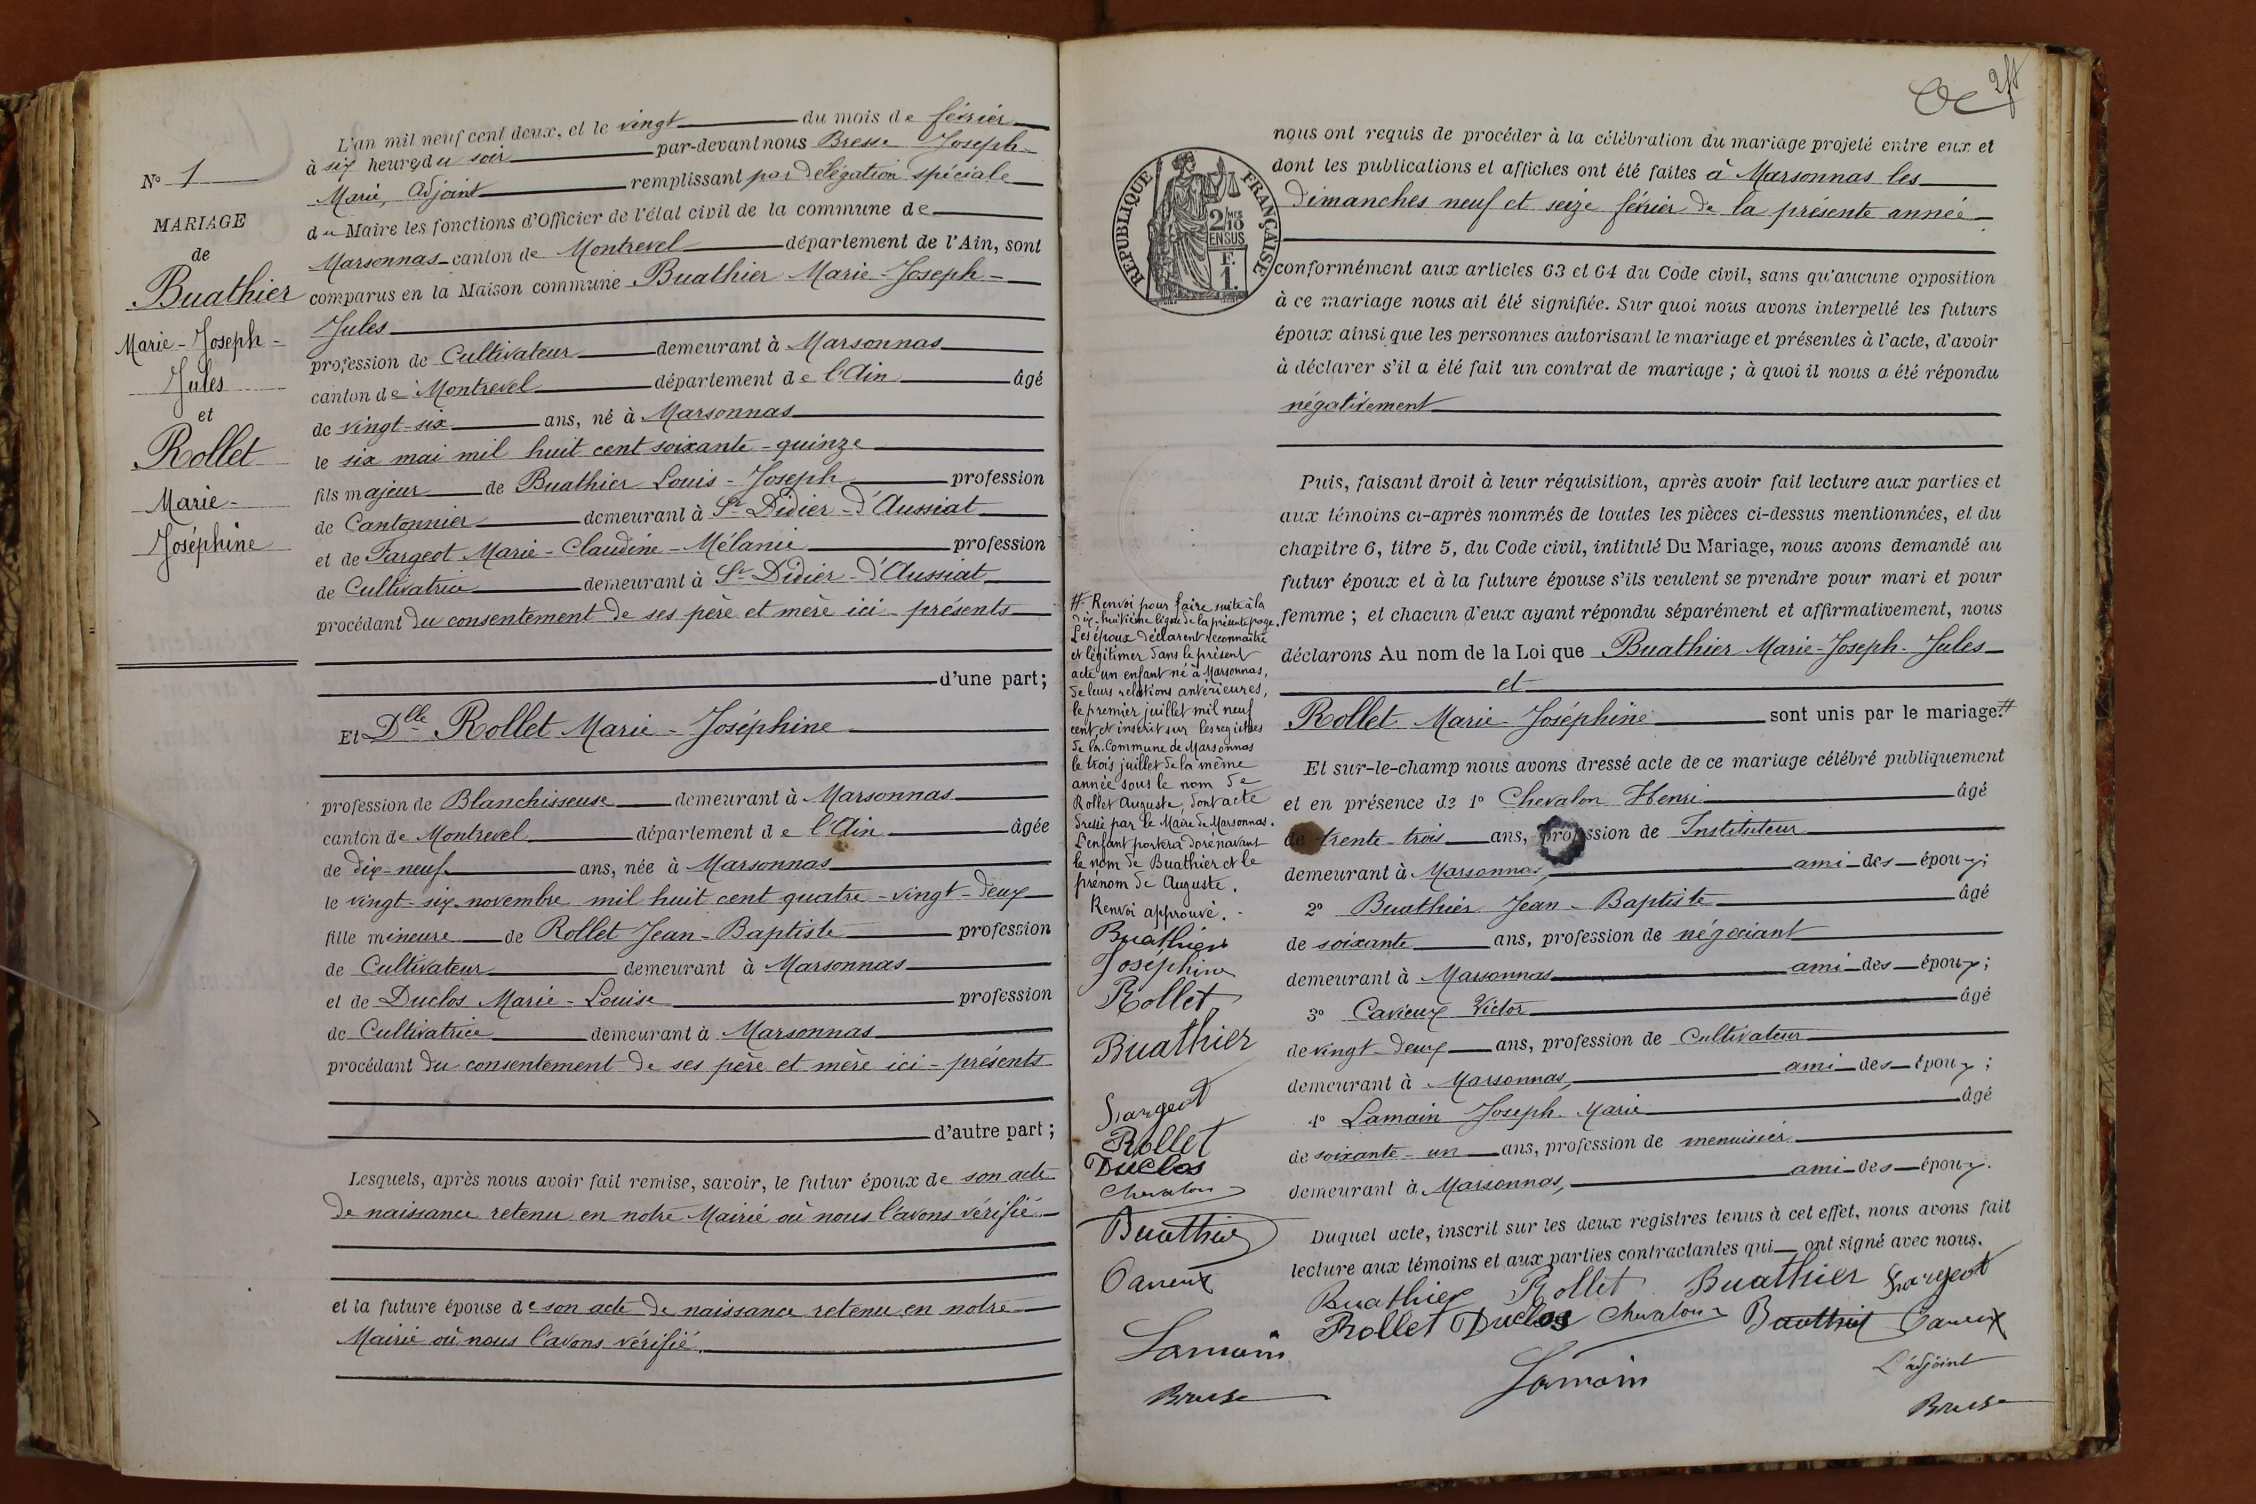 N° 1
MARIAGE
de
Buathier
Marie-Joseph-
Jules
et
Rollet
Marie-
Joséphine
L'an mil neuf cent deux, et le vingt du mois de février
à six heures du soir par-devant nous Bresse Joseph-
Marie, Adjoint remplissant par délégation spéciale
du Maire les fonctions d'Officier de l'état civil de la commune de
Marsonnas canton de Montrevel département de l'Ain, sont
comparus en la Maison commune Buathier Marie-Joseph-
Jules
profession de Cultivateur demeurant à Marsonnas
canton de Montrevel département de l'Ain âgé
de vingt-six ans, né à Marsonnas
le six mai mil huit cent soixante-quinze
fils majeur de Buathier Louis-Joseph profession
de Cantonnier demeurant à St Didier-d'Aussiat
et de Fargeot Marie-Claudine-Mélanie profession
de Cultivatrice demeurant à St Didier-d'Aussiat
procédant du consentement de ses père et mère ici-présents
d'une part;
Et Dlle Rollet Marie-Joséphine
profession de Blanchisseuse demeurant à Marsonnas
canton de Montrevel département de l'Ain âgée
de dix-neuf ans, née à Marsonnas
le vingt-six novembre mil huit cent quatre-vingt-deux
fille mineure de Rollet Jean-Baptiste profession
de Cultivateur demeurant à Marsonnas
et de Duclos Marie-Louise profession
de Cultivatrice demeurant à Marsonnas
procédant du consentement de ses père et mère ici-présents
d'autre part;
Lesquels, après nous avoir fait remise, savoir, le futur époux de son acte
de naissance retenu en notre Mairie où nous l'avons vérifié
et la future épouse de son acte de naissance retenu en notre
Mairie où nous l'avons vérifié.
RÉPUBLIQUE FRANÇAISE
2/10
EN SUS
F.
1.
nous ont requis de procéder à la célébration du mariage projeté entre eux et
dont les publications et affiches ont été faites à Marsonnas les
dimanches neuf et seize février de la présente année
conformément aux articles 63 et 64 du Code civil, sans qu'aucune opposition
à ce mariage nous ait été signifiée. Sur quoi nous avons interpellé les futurs
époux ainsi que les personnes autorisant le mariage et présentes à l'acte, d'avoir
à déclarer s'il a été fait un contrat de mariage ; à quoi il nous a été répondu
négativement
Puis, faisant droit à leur réquisition, après avoir fait lecture aux parties et
aux témoins ci-après nommés de toutes les pièces ci-dessus mentionnées, et du
chapitre 6, titre 5, du Code civil, intitulé Du Mariage, nous avons demandé au
futur époux et à la future épouse s'ils veulent se prendre pour mari et pour
femme ; et chacun d'eux ayant répondu séparément et affirmativement, nous
déclarons Au nom de la Loi que Buathier Marie-Joseph-Jules
et
Rollet Marie-Joséphine sont unis par le mariage.#
Et sur-le-champ nous avons dressé acte de ce mariage célébré publiquement
et en présence de 1° Chevalon Henri âgé
de trente-trois ans, profession de Instituteur
demeurant à Marsonnas, ami des époux;
2° Buathier Jean-Baptiste âgé
de soixante ans, profession de négociant
demeurant à Marsonnas ami des époux;
3° Carieux Victor âgé
de vingt-deux ans, profession de Cultivateur
demeurant à Marsonnas, ami des époux;
4° Lamain Joseph-Marie âgé
de soixante-un ans, profession de menuisier
demeurant à Marsonnas, ami des époux.
Duquel acte, inscrit sur les deux registres tenus à cet effet, nous avons fait
lecture aux témoins et aux parties contractantes qui ont signé avec nous.
Buathier Rollet Buathier Fargeot
Rollet Duclos Chevalon Buathier Carieux
Lamain L'adjoint
Bresse
# Renvoi pour faire suite à la
dix-huitième ligne de la présente page.
Les époux déclarent reconnaître
et légitimer dans le présent
acte un enfant né à Marsonnas,
de leurs relations antérieures,
le premier juillet mil neuf
cent et inscrit sur les registres
de la Commune de Marsonnas
le trois juillet de la même
année sous le nom de
Rollet Auguste, dont acte
dressé par le Maire de Marsonnas.
L'enfant portera dorénavant
le nom de Buathier et le
prénom de Auguste.
Renvoi approuvé.
Buathier
Joséphine
Rollet
Buathier
Fargeot
Rollet
Duclos
Chevalon
Buathier
Carieux
Lamain
Bresse